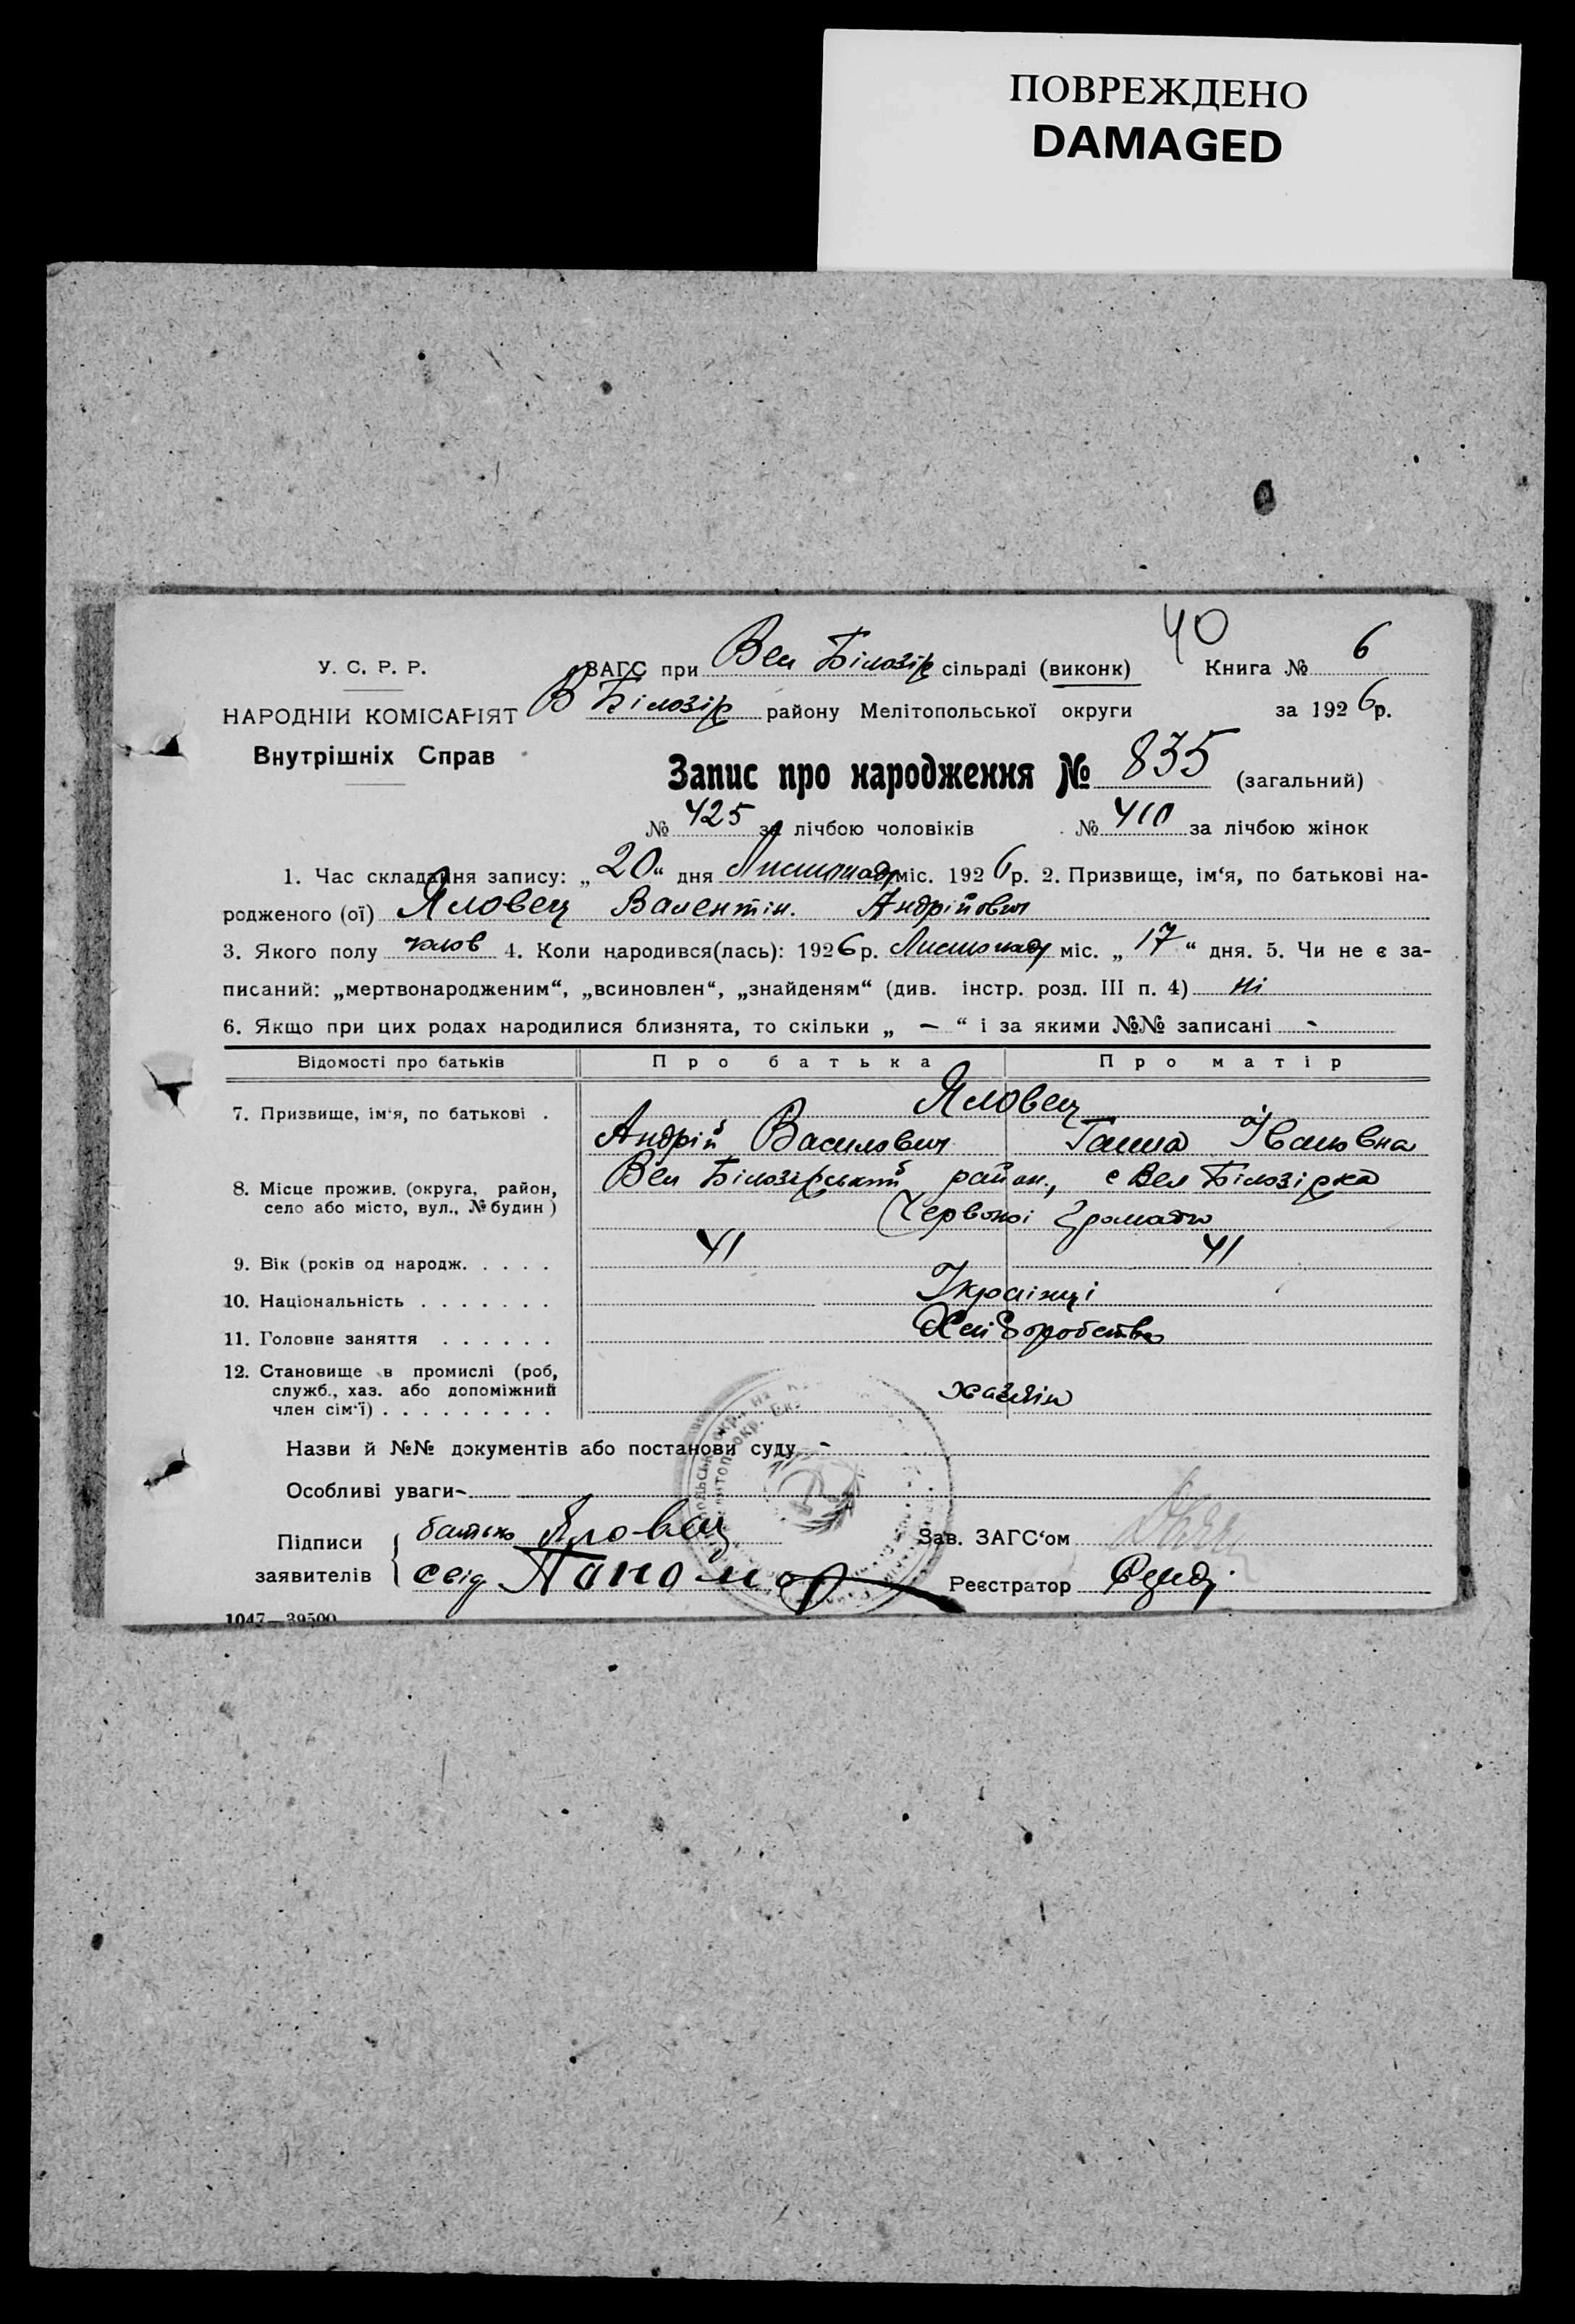 ПОВРЕЖДЕНО
DAMAGED
40
У. С. Р. Р.
ЗАГС при Вел Білозір сільраді (виконк) Книга № 6
НАРОДНІЙ КОМІСАРІЯТ
В Білозір району Мелітопольської округи за 1926 р.
Внутрішніх Справ
Запис про народження № 835 (загальний)
№ 425 за лічбою чоловіків № 410 за лічбою жінок
1. Час складання запису: „20“ дня Листопада міс. 1926 р. 2. Призвище, ім‘я, по батькові на-
родженого (ої) Яловец Валентін. Андрійович
3. Якого полу чолов 4. Коли народився(лась): 1926 р. Листопаду міс. „17“ дня. 5. Чи не є за-
писаний: „мертвонародженим“, „всиновлен“, „знайденям“ (див. інстр. розд. III п. 4) ні
6. Якщо при цих родах народилися близнята, то скільки „ — “ і за якими №№ записані -
Відомості про батьків Про батька Про матір
7. Призвище, ім‘я, по батькові . Яловец
Андрій Василович Ганна Івановна
8. Місце прожив. (округа, район, село або місто, вул., № будин) Вел Білозірський район., с Вел Білозірка
Червоної Громади
9. Вік (років од народж. . . . . 41 41
10. Національність . . . . . . . Українці
11. Головне заняття . . . . . . Хліборобство
12. Становище в промислі (роб,
служб., хаз. або допоміжний
член сім‘ї) . . . . . . . . . хазяїн
Назви й №№ документів або постанови суду -
Особливі уваги -
Підписи
заявителів
батько Яловец
свід Паномар
Зав. ЗАГС‘ом
Реєстратор
1047—39500